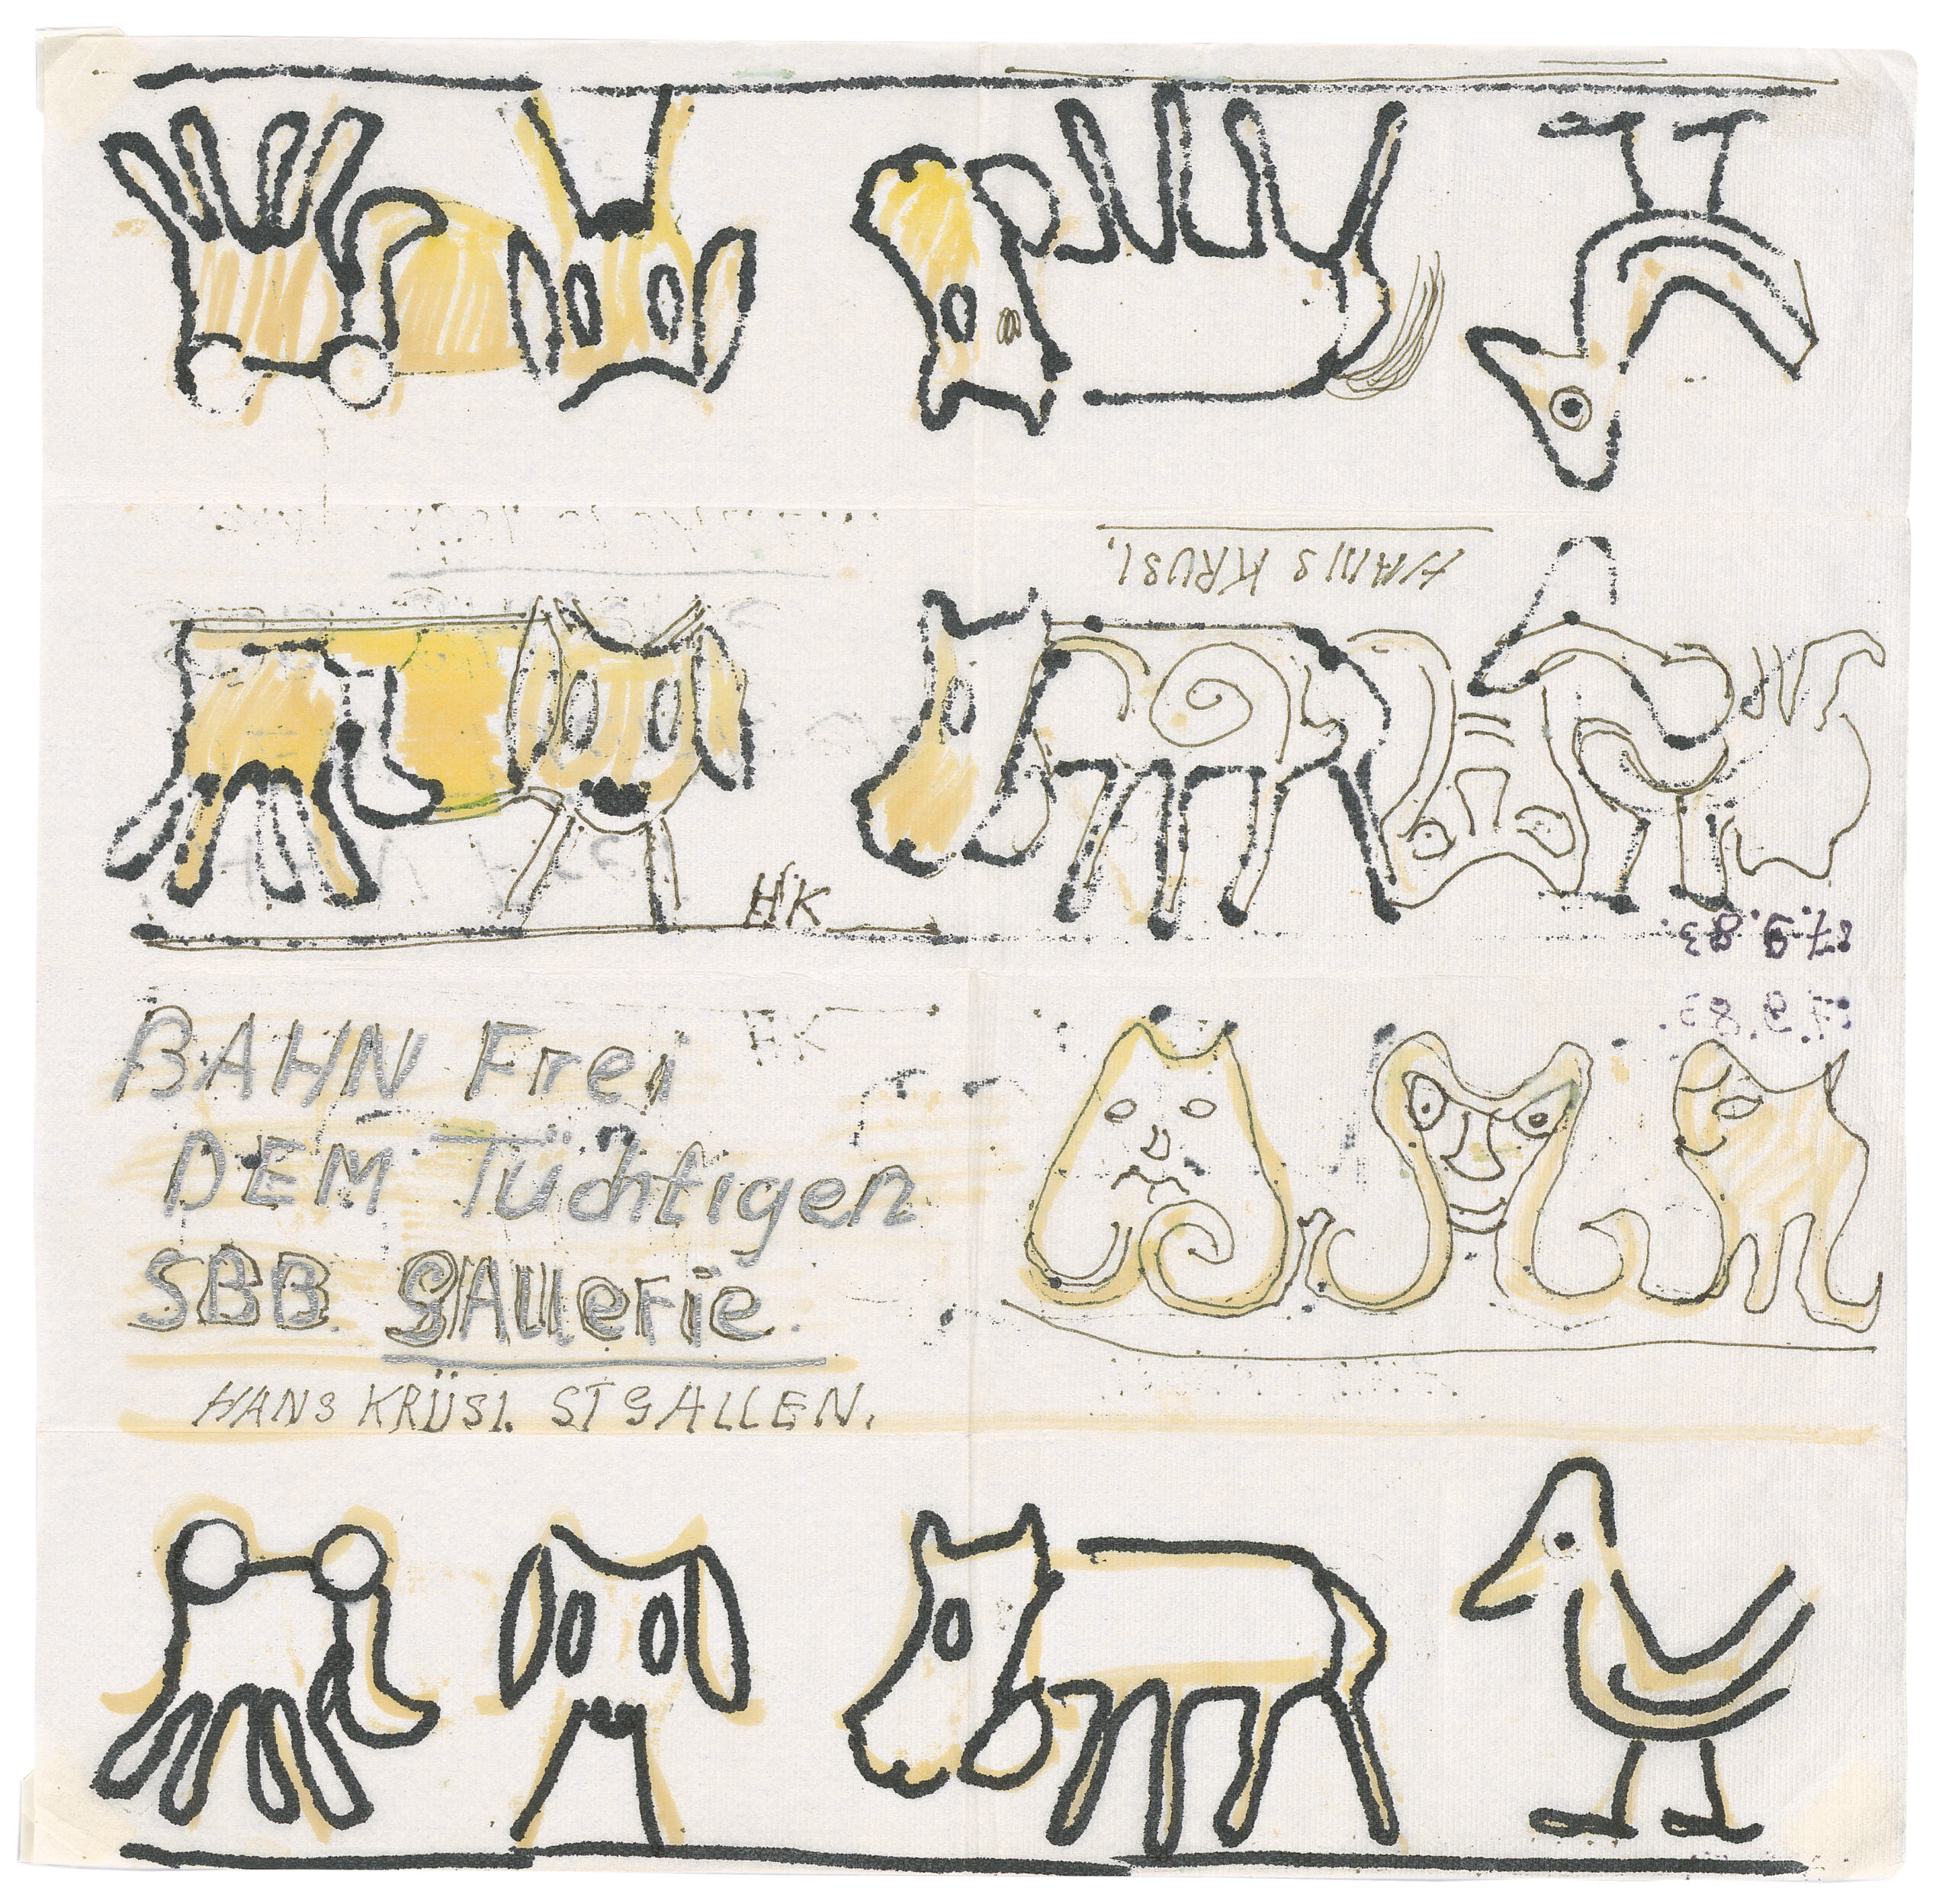 HANS KRUSI.
HK
87.9.83.
BAHN Frei
DEM Tüchtigen
SBB. GAllerie.
HANS KRÜSI. ST GALLEN.